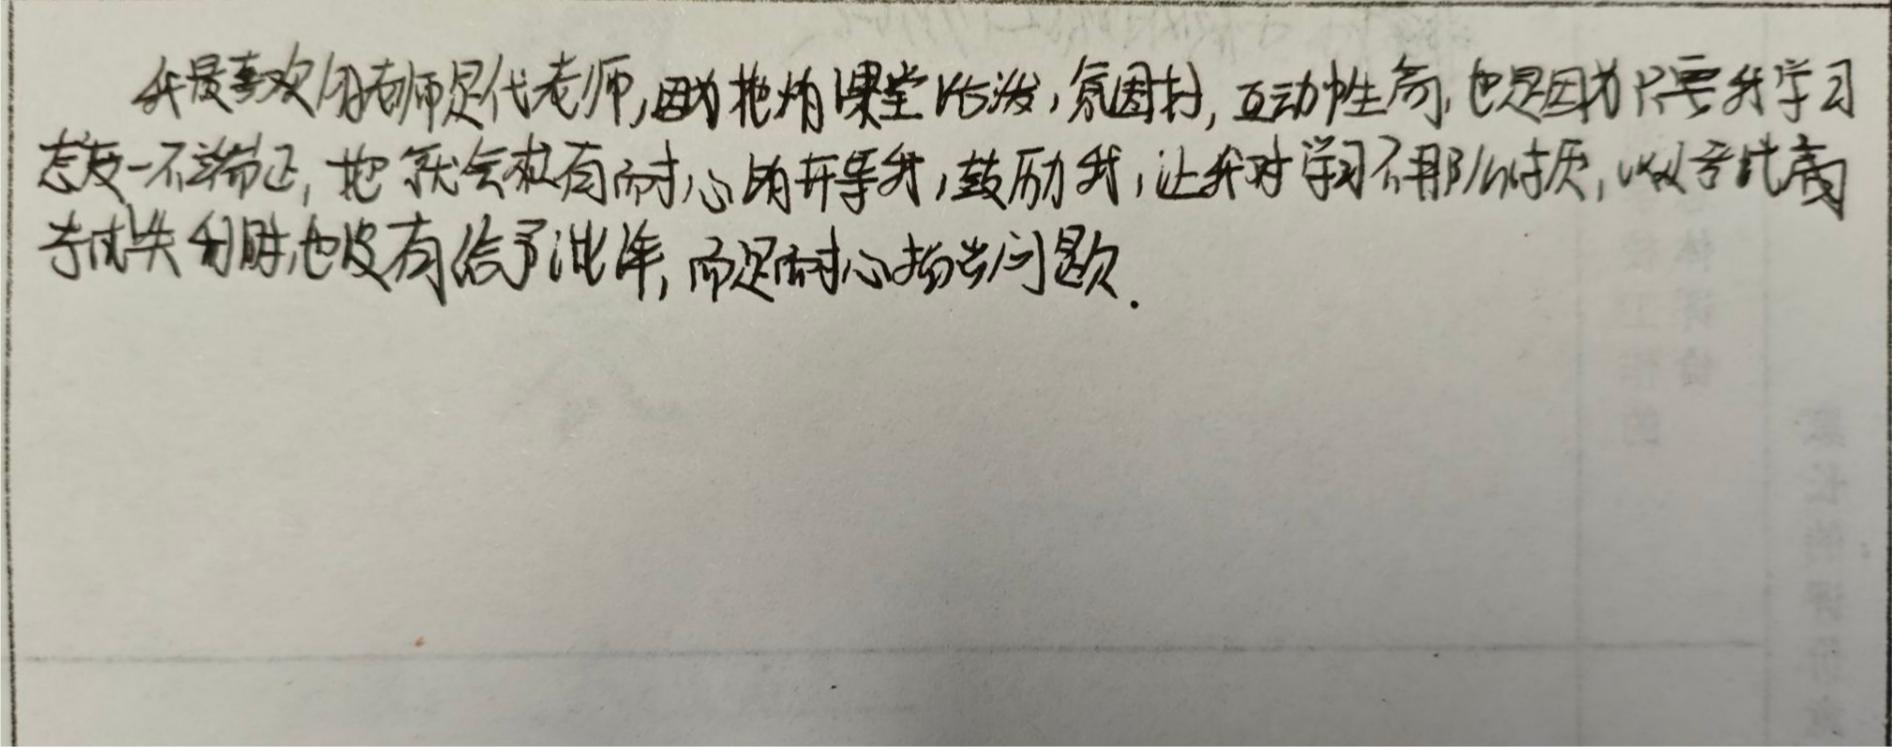 我最喜欢的老师是代老师,因为他的课堂活泼,氛围好,互动性高,也是因为只要我学习
态度一不端正,他就会很有耐心的开导我,鼓励我,让我对学习不那么抗质,以及考试高
考试失利时他没有给予批评,而是耐心指出问题.